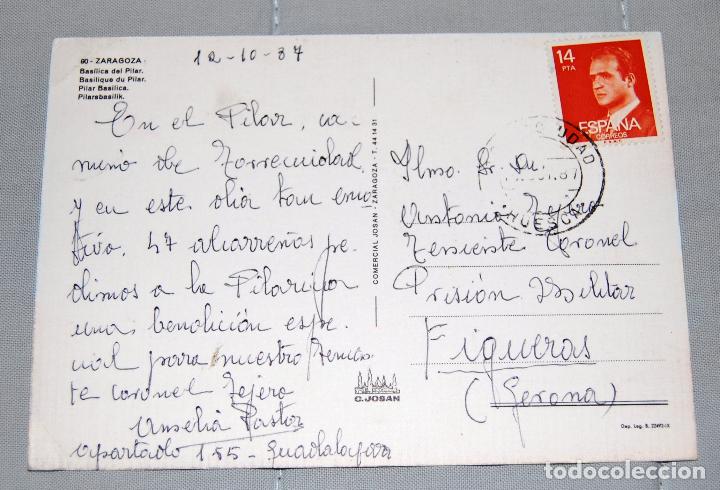 12-10-87
60 - ZARAGOZA
Basílica del Pilar.
Basilique du Pilar.
Pilar Basilica.
Pilarsbasilik.
En el Pilar, ca-
mino de Torreciudad,
y en este día tan emo
tivo, 47 alcarreños pe
dimos a la Pilarica
una bendición espe.
cial para nuestro Tenien
te coronel Tejero
Amelia Pastor
apartado 185 - Guadalajara
COMERCIAL JOSAN - ZARAGOZA - T. 44 14 31
C. JOSAN
14
PTA
ESPAÑA
CORREOS
CIUDAD
87
HUESCA
Ilmo. Sr. Dn.
Antonio Tejero
Teniente Coronel
Prisión Militar
Figueras
(Gerona)
Dep. Leg. B.
todocoleccion.net